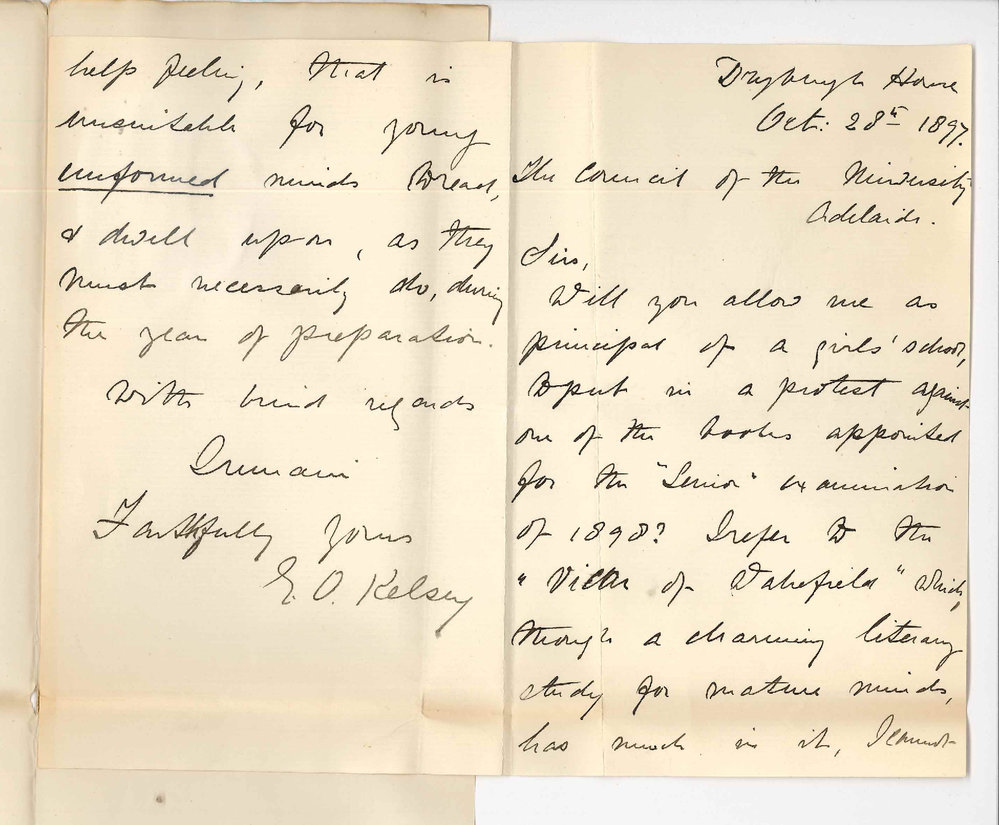 Dryburgh House
Oct: 28th 1897.
The Council of the University
Adelaide.
Sirs,
Will you allow me as
principal of a girls' school,
to put in a protest against
one of the books appointed
for the "Senior" examination
of 1898? I refer to the
"Vicar of Wakefield" which,
though a charming literary
study for mature minds,
has much in it, I cannot
help feeling, that is
unsuitable for young
unformed minds to read,
& dwell upon, as they
must necessarily do, during
the year of preparation.
With kind regards
I remain
Faithfully yours
E. O. Kelsey